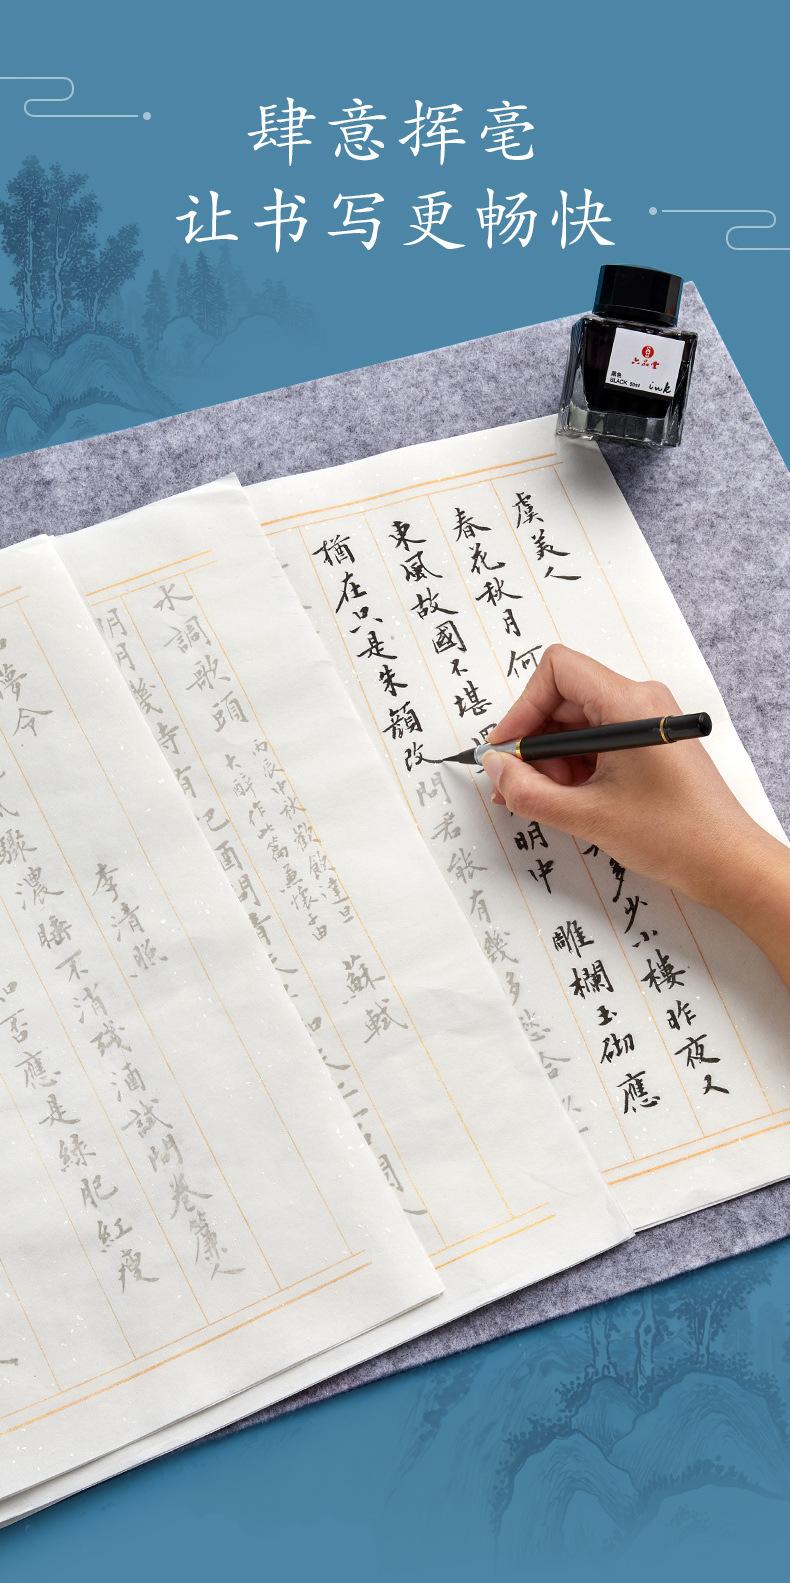 肆意挥毫
让书写更畅快
六品堂
黑色
BLACK 50ml
ink
虞美人
春花秋月何
多少小樓昨夜又
東風故國不堪
明中
雕欄玉砌應
猶在只是朱顏改
問君能有幾多愁合
水調歌頭
丙辰中秋歡飲達旦
大醉作此篇兼懷子由
蘇軾
月幾時有把酒問青天
夢令
李清照
驟濃睡不消殘酒試問卷簾人
否應是綠肥紅瘦